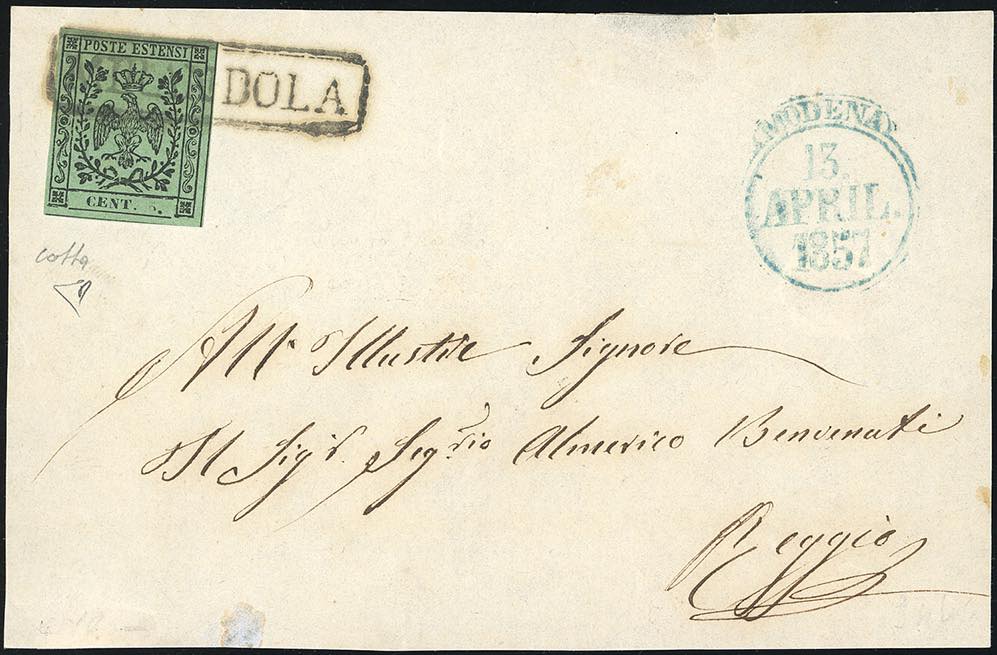 POSTE ESTENSI
CENT. 5.
DOLA
MODENA
13.
APRIL.
1857
All' Illustre Signore
Il Sigr. Segrio Almerico Benvenuti
Reggio